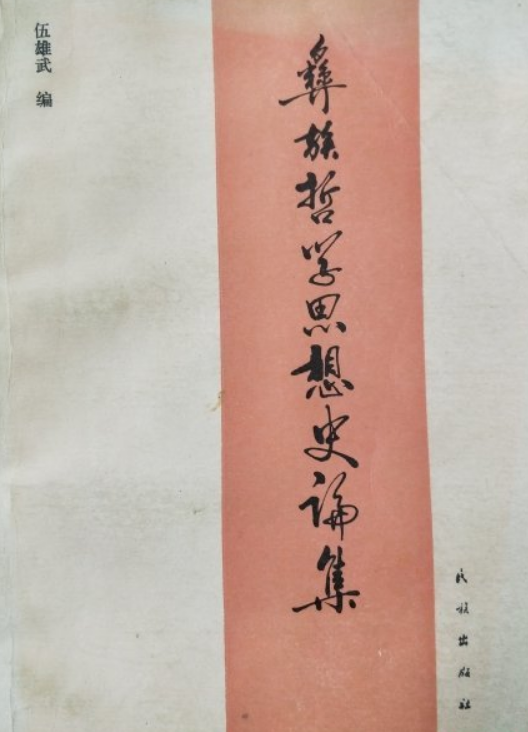 伍雄武 编
彝族哲学思想史论集
民族出版社